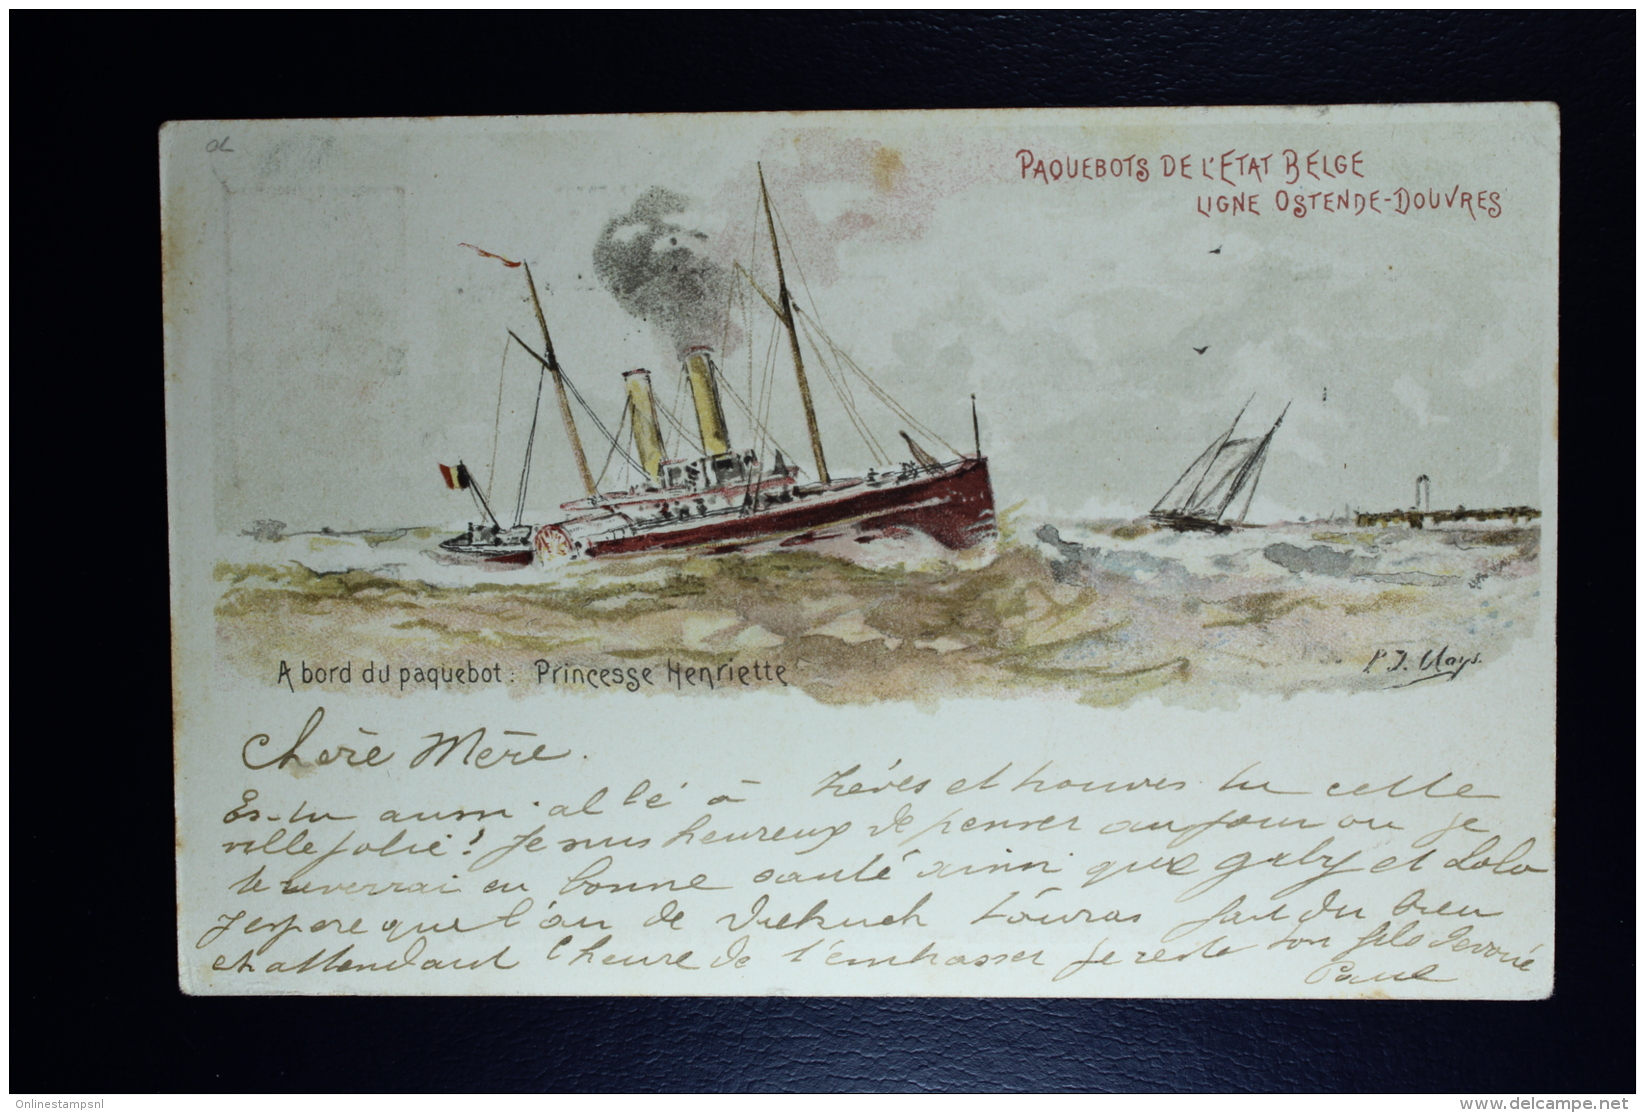 OL
PAQUEBOTS DE L'ETAT BELGE
LIGNE OSTENDE-DOUVRES
A bord du paquebot : Princesse Henriette
P. J. Clays.
Chère Mère.
Es-tu aussi allé à Trèves et trouves tu cette
ville jolie! Je suis heureux de penser au jour ou je
te reverrai en bonne santé ainsi que Gaby et Lolo
J'espère que l'an de t'auras fait du bien
et attendant l'heure de t'embrasser je reste ton fils dévoué
Paul
Onlinestampsnl
delcampe.net